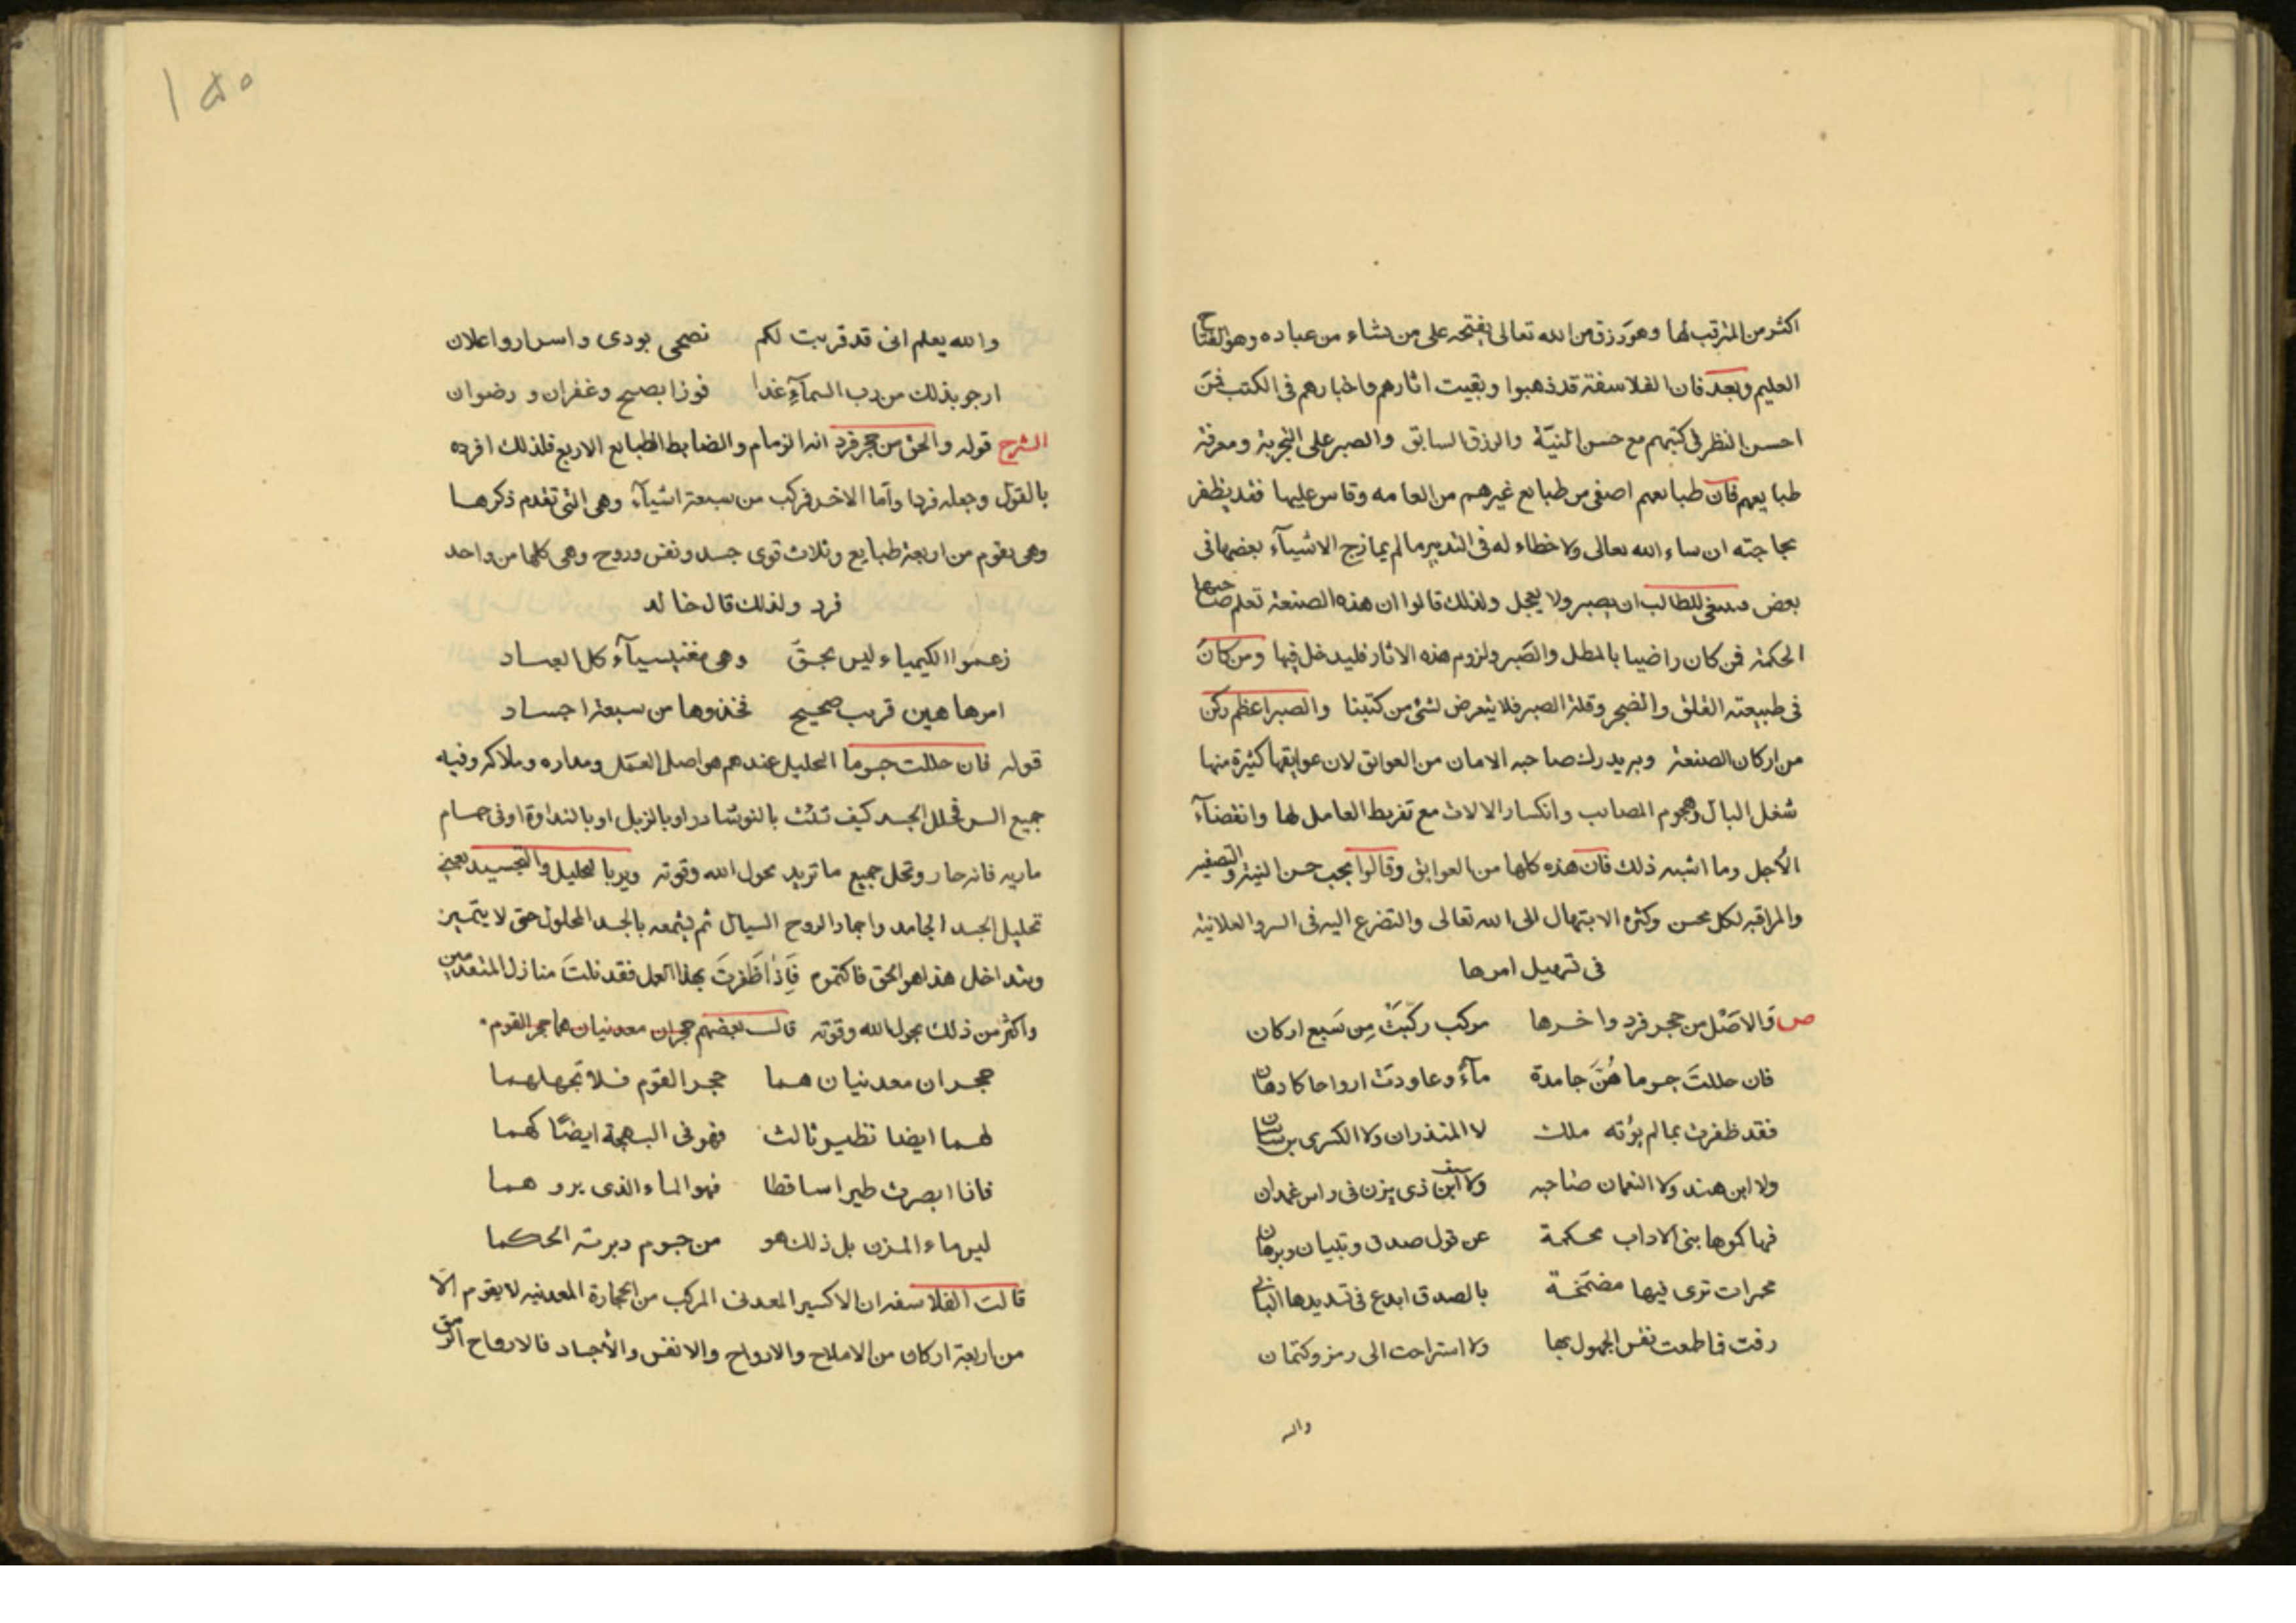 اكثر من المترقب لها وهو رزق من الله تعالى يفتحه على من يشاء من عباده وهو الفتاح
العليم وبعد فان الفلاسفة قد ذهبوا وبقيت اثارهم واخبارهم فى الكتب فمن
احسن النظر فى كتبهم مع حسن النية والرزق السابق والصبر على التجربة ومعرفة
طبايعهم فان طبائعهم اصفى من طبايع غيرهم من العامه وقاس عليها فقد يظفر
بحاجته ان شاء الله تعالى ولا خطاء له فى التدبير مالم يمازج الاشيآء بعضها فى
بعض فينبغى للطالب ان يصبر ولا يعجل ولذلك قالوا ان هذه الصنعة تعلم صاحبها
الحكمة فمن كان راضيا بالمطل والصبر ولزوم هذه الاثار فليدخل فيها ومن كان
فى طبيعته القلق والضجر وقلة الصبر فلا يتعرض لشئ من كتبنا والصبر اعظم ركن
من اركان الصنعة وبه يدرك صاحبه الامان من العوائق لان عوايقها كثيرة منها
شغل البال وهجوم المصائب وانكسار الالات مع تفريط العامل لها وانقضآء
الأجل وما اشبه ذلك فان هذه كلها من العوائق وقالوا يجب حسن النية
والمراقبه لكل محسن وكثرة الابتهال الى الله تعالى والتضرع اليه فى السر والعلانية
فى تسهيل امرها
ص وَالاَصْل من حجر فرد واخرها مركب ركّبَتْ مِن سَبع اركان
فان حللتَ جسوما هُنَّ جامدة مآءً وعاودت ارواحا كادهان
فقد ظفرت بمالم يؤته ملك لا المنذران ولا الكسرى بن ساسان
ولا ابن هند ولا النعمان صاحبه ولا ابن سيف ذى يزن فى راس غمدان
فهاكموها بنى الاداب محكمة عن قول صدق وتبيان وبرهان
محبرات ترى فيها مضمّخة بالصدق ابدع فى تسديدها البانى
رقت فاطعت نفس الجهول بها ولا استراحت الى رمز وكتمان
والله
١٥٥
والله يعلم انى قد قربت لكم نصحى بودى واسرار واعلان
ارجو بذلك من رب السمآءِ غدا فوزا بصفح وغفران و رضوان
الشرح قوله والحق من حجر فرد انه الزمام والضابط الطبايع الاربع فلذلك افرده
بالقول وجعله فردا وأما الاخر فركب من سبعة اشيآء وهى التى تقدم ذكرها
وهى يقوم من اربعة طبايع وثلاث قوى جسد ونفس وروح وهى كلها من واحد
فرد ولذلك قال خالد
زعموا الكيمياء ليس بحقّ وهى مغنيسيآء كل العباد
امرها هين قريب صحيح فخذوها من سبعة اجساد
قوله فان حللت جسوما التحليل عندهم هو اصل العمل ومداره وملاكه وفيه
جميع السر فحلل الجسد كيف شئت بالنوشادر او بالزبل او بالنداوة اوفى حمام
ماريه فانه حار وتحل جميع ما تريد بحول الله وقوته ويريد بالتحليل والتجسيد يعنى
تحليل الجسد الجامد واجماد الروح السيال ثم يجمعه بالجسد المحلول حتى لا يتميز
ويتداخل هذا هو الحق فاكتموم فَاِذْا ظَفَرتَ بهذا العمل فقد نلتَ منازل المتقدمين
واكثر من ذلك بحول الله وقوته قال بعضهم حجران معدنيان هما حجر القوم
حجران معدنيان هما حجر القوم فلا تجهلهما
لهما ايضا نظير ثالث فهو فى البهجة ايضًا كهما
فاذا ابصرت طيرا ساقطا فهو الماء الذى يروهما
ليس ماء المزن بل ذلك هو من جسوم دبرته الحكما
قالت الفلاسفه ان الاكسير المعدنى المركب من الحجارة المعدنيه لا يقوم الّا
من اربعة اركان من الاملاح والارواح والانفس والأجساد فالارواح